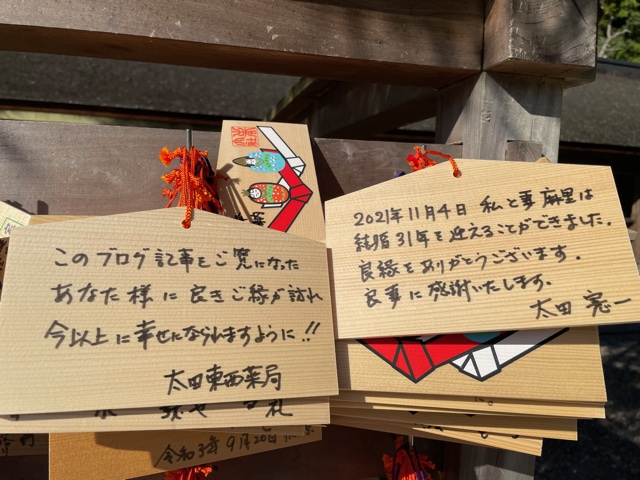 このブログ記事をご覧になった
あなた様に良きご縁が訪れ
今以上に幸せになられますように!!
太田東西薬局
2021年11月4日 私と妻麻里は
結婚31年を迎えることができました。
良縁をありがとうございます。
良事に感謝いたします。
太田 憲一
令和3年9月20日